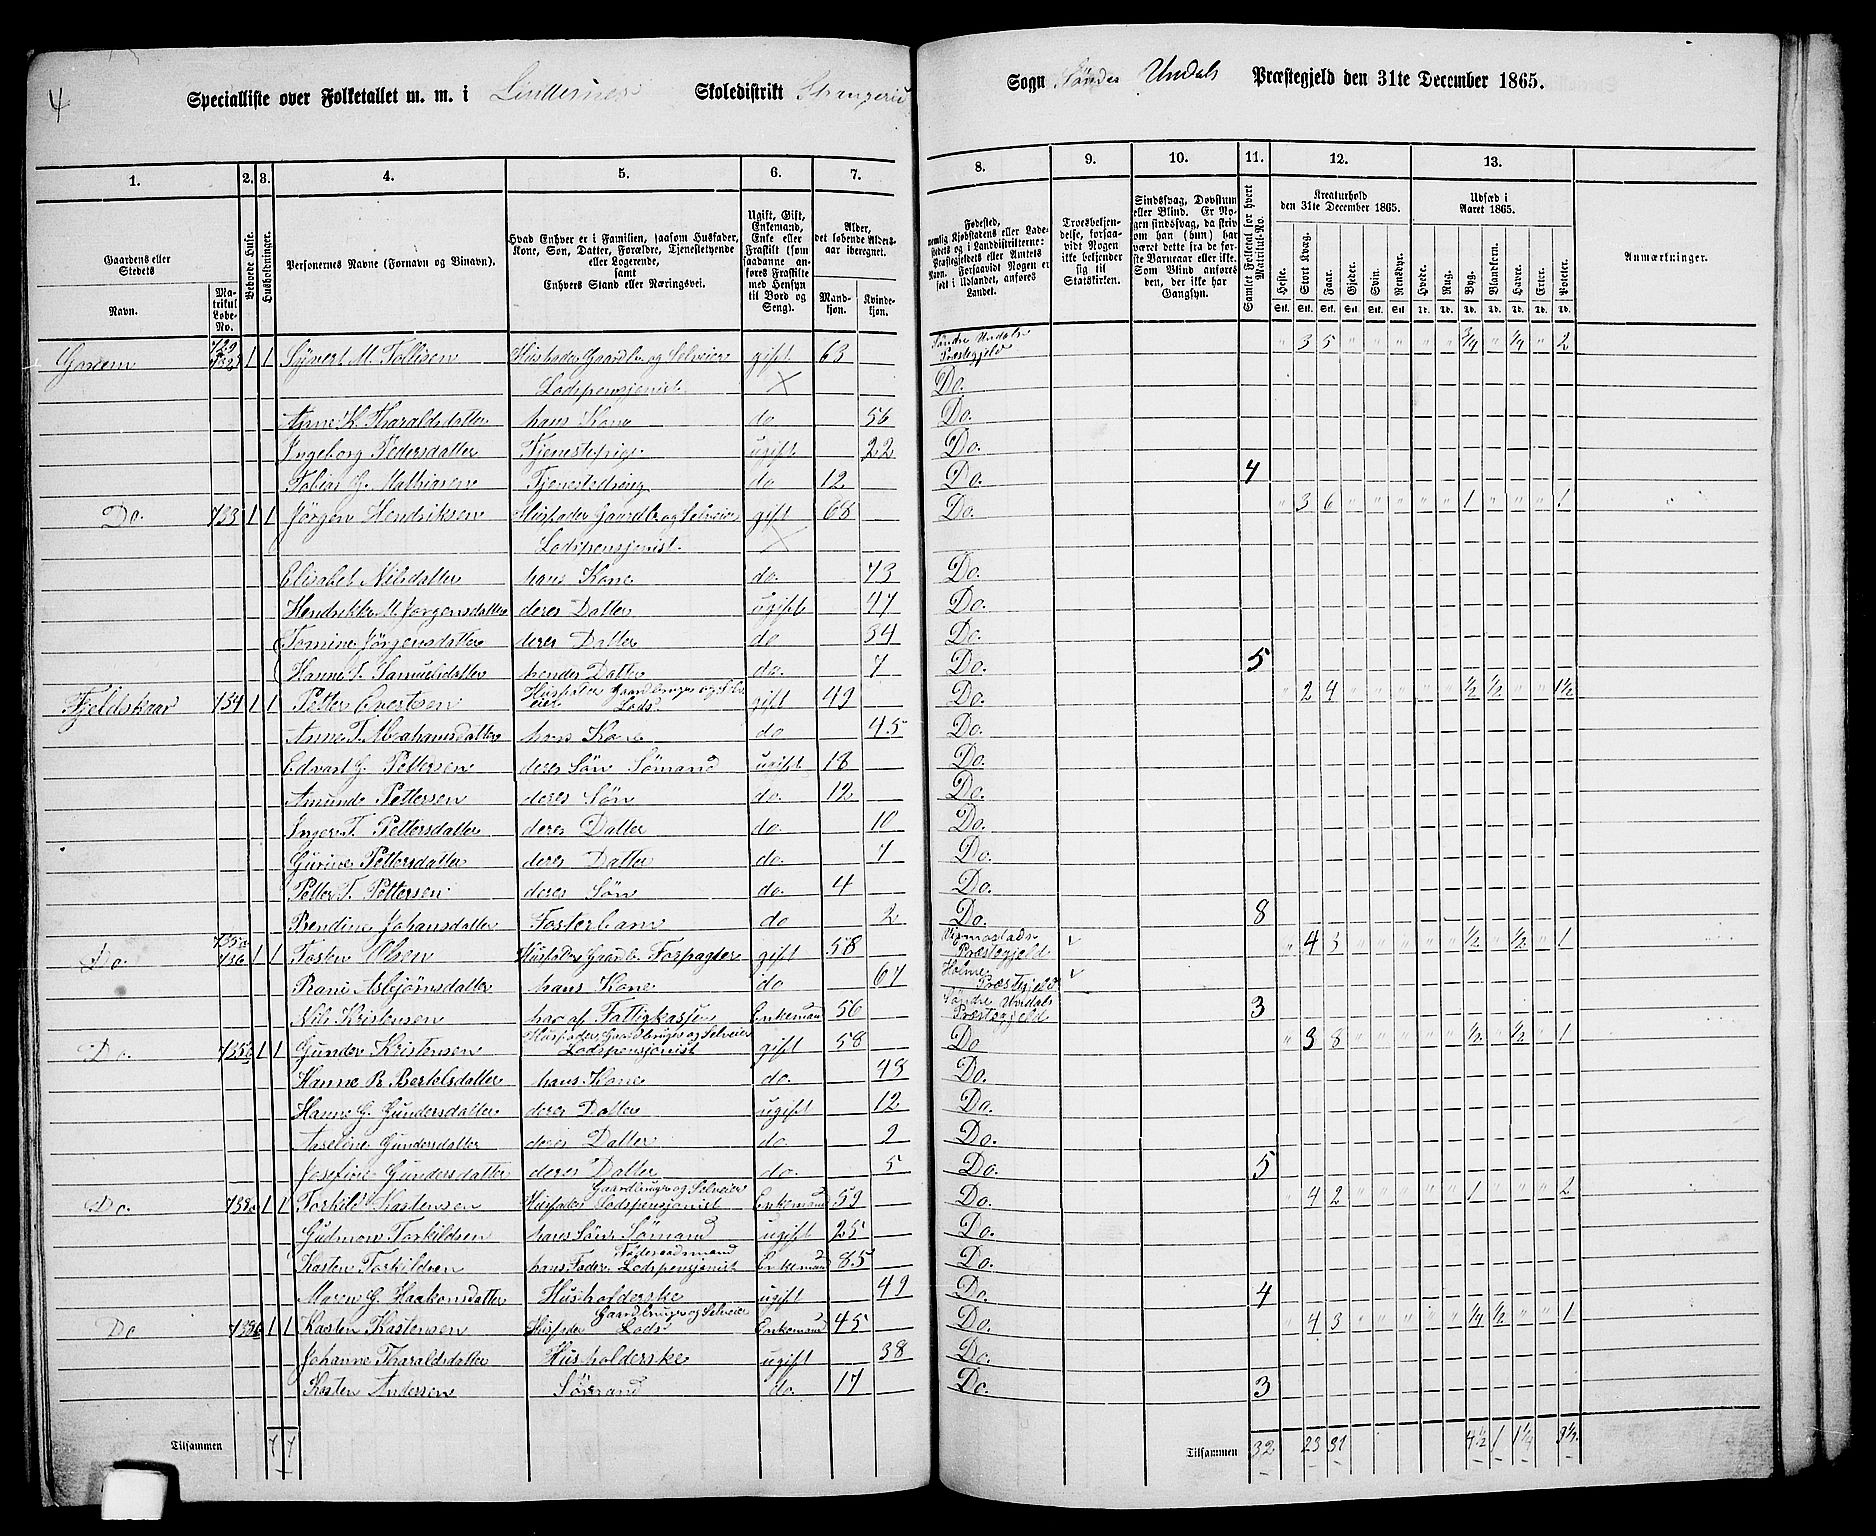 4
Specialliste over Folketallet m. m. i Lindernes Skoledistrikt
Sogn Søndre Undals Præstegjeld den 31te December 1865.
1. 2. 3. 4. 5. 6. 7. 8. 9. 10. 11. 12. 13.
Gaardens eller Stedets Navn. Matrikul Løbe-No. Beboede Huse. Husholdninger. Personernes Navne (Fornavn og Binavn).
Hvad Enhver er i Familien, saasom Husfader, Kone, Søn, Datter, Forældre, Tjenestetyende eller Logerende, samt Enhvers Stand eller Næringsvei.
Ugift, Gift, Enkemand, Enke eller Fraskilt (som saadanne anføres Fraskilte med Hensyn til Bord og Seng).
Alder, det løbende Aldersaar iberegnet. Mandkjøn. Kvindekjøn.
Fødested, nemlig Kjøbstadens eller Ladestedets og i Landdistrikterne: Præstegjeldets eller Amtets Navn. Forsaavidt Nogen er født i Udlandet, anføres Landet.
Troesbekjendelse, forsaavidt Nogen ikke bekjender sig til Statskirken.
Sindssvag, Døvstum eller Blind. Er Nogen sindssvag, da skriv om han (hun) har været dette fra de første Barneaar eller ikke. Som Blind anføres den, der ikke har Gangsyn.
Samlet Folketal for hvert Matrikul-No.
Kreaturhold den 31te December 1865. Heste. Stort Kvæg. Faar. Gjeder. Svin. Rensdyr.
Udsæd i Aaret 1865. Hvede. Rug. Byg. Blandkorn. Havre. Erter. Poteter.
Anmærkninger.
1 1 Syvert M. Tollisen Husfader Gaardb. og Selveier gift 63 Søndre Undals Præstegjeld " 3 5 " " " " " 3/4 " 1/4 " 2
Lodspensjonist × Do.
Anne K. Tharaldsdatter hans Kone do 56 Do.
Ingeborg Pedersdatter Tjenestepige ugift 22 Do.
Tobias G. Mathiasen Tjenestedreng do 12 Do. 4
Do. 133 1 1 Jørgen Hendriksen Husfader Gaardb og Selveier gift 68 Do. " 3 6 " " " " " 1 " " " 1
Lodspensjonist ×
Elisabet Nilsdatter hans Kone do. 73 Do.
Hendrikke M. Jørgensdatter deres Datter ugift 47 Do.
Tomine Jørgensdatter deres Datter do 34 Do.
Hanne T. Samuelsdatter hendes Datter do. 7 Do. 5
Fjeldskaar 134 1 1 Petter Evertsen Husfader Gaardbruger og Selveier Lods gift 49 Do. " 2 4 " " " " " 1/2 1/2 " " 1 1/2
Anne T. Abrahamsdatter hans Kone do 45 Do.
Edvart G. Pettersen deres Søn Sømand ugift 18 Do.
Amunde Pettersen deres Søn do. 12 Do.
Inger T. Pettersdatter deres Datter do. 10 Do.
Gurine Pettersdatter deres Datter do. 7 Do.
Petter T. Pettersen deres Søn do. 4 Do.
Bendine Johansdatter Fosterbarn do 2 Do. 8
Do. 135a 136 1 1 Tosten Olsen Husfader Gaardb. Forpagter gift 58 Præstegjeld ✓ " 4 3 " " " " " 1/2 " 1/2 " 1
Rani Asbjørnsdatter hans Kone do 67 Holme Præstegjeld ✓
Nils Kristensen har af Fattigkassen Enkemand 56 Søndre Undals Præstegjeld 3
Do. 135b 1 1 Gunder Kristensen Husfader, Gaardbruger og Selveier Lodspensjonist gift 58 Do " 3 8 " " " " " 1/2 " 1/2 " 1
Hanne B. Bertelsdatter hans Kone do. 48 Do.
Hanne G. Gundersdatter deres Datter ugift 12 Do.
Aselene Gundersdatter deres Datter do 2 Do.
Josefine Gundersdatter deres Datter do. 5 Do. 5
Do. 1 1 Torkild Kastensen Husfader Gaardbruger og Selveier Lodspensjonist Enkemand 59 Do. " 4 2 " " " " " 1 " " " 2
Gudmon Torkildsen hans Søn Sømand ugift 25 Do.
Kasten Torkildsen hans Fader Føderaadsmand Lodspensjonist Enkemand 85 Do.
Maren G. Haakonsdatter Husholderske ugift 49 Do. 4
Do 1 1 Kasten Kastensen Husfader Gaardbruger og Selveier Lods Enkemand 45 Do. " 4 3 " " " " " 1/4 1/2 " " 1
Johanne Tharaldsdatter Husholderske ugift 38 Do.
Kasten Andersen Sømand do. 17 Do. 3
Tilsammen 7 7 Tilsammen 32 23 31 4 1/2 1 1 1/4 9 1/2